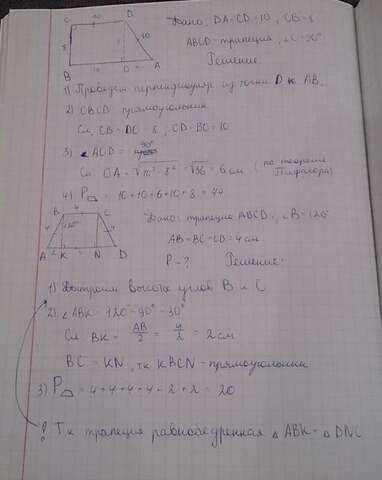 C 10 D
Дано: DA=CD=10, CB=8
8
ABCD-трапеция, ∠C=90°
B 10 O A
Решение:
1) Проведём перпендикуляр из точки D к AB.
2) OBCD прямоугольник
Сл, CB=DC=8, CD=BC=10
3) ∠AOD=90°
Сл OA=√10²-8²=√36=6см (по теореме Пифагора)
4) P=10+10+6+10+8=44
B 4 C
Дано: трапеция ABCD, ∠B=120°
4 120° 4
AB=BC=CD=4см
A K N D
P-? Решение:
1) Достроим высоты углов B и C
2) ∠ABK=120°-90°=30°
Сл BK=AB/2=4/2=2см
BC=KN, тк KBCN-прямоугольник
3) P=4+4+4+4+2+2=20
! Т.к трапеция равнобедренная △ABK=△DNC